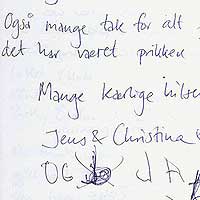 Også mange tak for alt
det har været prikken
Mange kærlige hilsen
Jens & Christina
OG JA